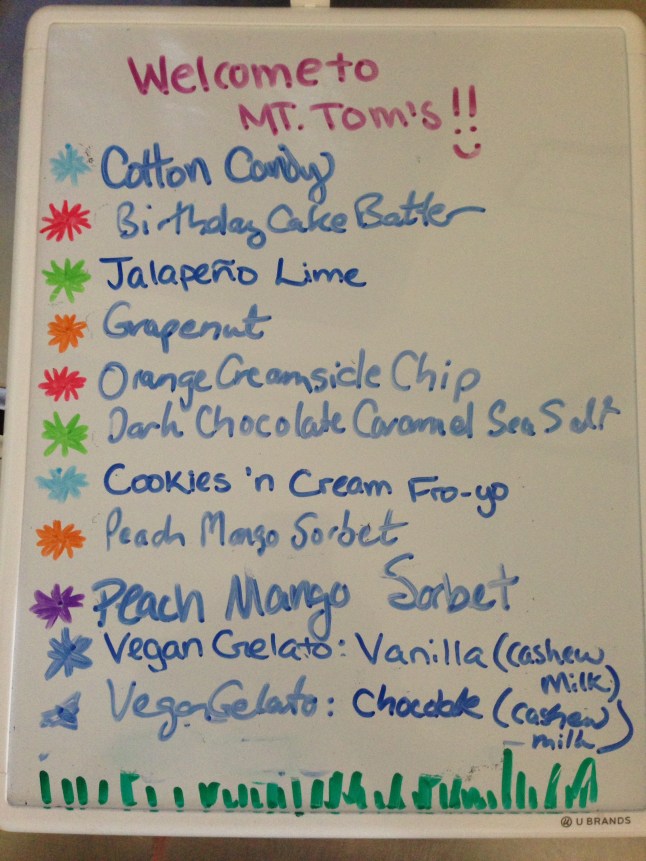 Welcome to
MT. Tom's!!
Cotton Candy
Birthday Cake Batter
Jalapeño Lime
Grapenut
Orange Creamsicle Chip
Dark Chocolate Caramel Sea Salt
Cookies 'n Cream Fro-yo
Peach Mango Sorbet
Peach Mango Sorbet
Vegan Gelato: Vanilla (cashew
Milk)
Vegan Gelato: Chocolate (cashew
milk)
U BRANDS